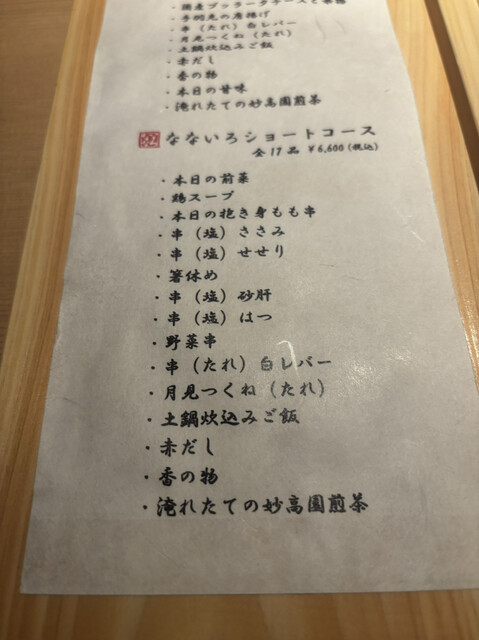 ・国産ブッラータチーズと
・手羽先の唐揚げ
・串（たれ）白レバー
・月見つくね（たれ）
・土鍋炊込みご飯
・赤だし
・香の物
・本日の甘味
・淹れたての妙高園煎茶
なないろショートコース
全17品 ¥6,600（税込）
・本日の前菜
・鶏スープ
・本日の抱き身もも串
・串（塩）ささみ
・串（塩）せせり
・箸休め
・串（塩）砂肝
・串（塩）はつ
・野菜串
・串（たれ）白レバー
・月見つくね（たれ）
・土鍋炊込みご飯
・赤だし
・香の物
・淹れたての妙高園煎茶